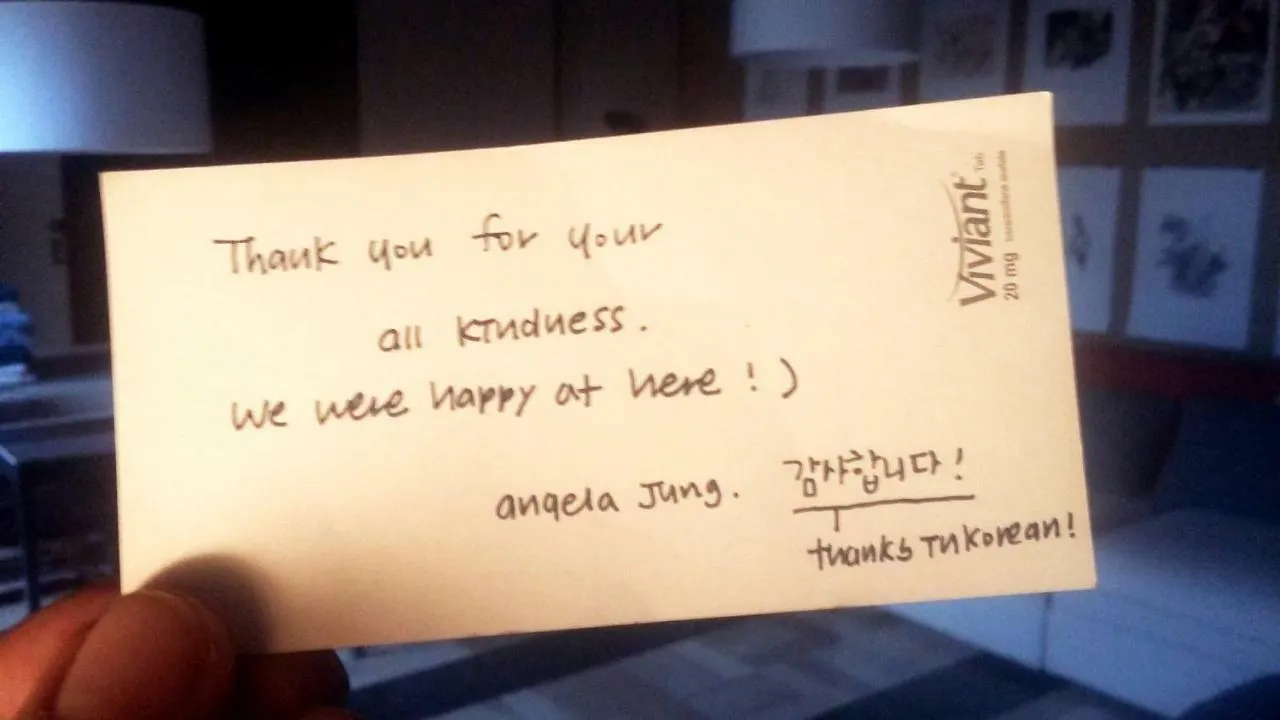 Thank you for your
all kindness.
We were happy at here !)
angela Jung. 감사합니다!
thanks in korean!
Viviant® Tab
20 mg